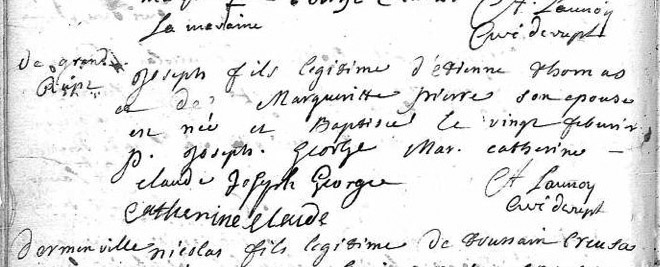 La maraine
C A Launoy
Curé de rupt
De grand
Rupt
joseph fils legitime d'etienne thomas
et de Margueritte pierre son epouse
est née et Baptisé le vingt feburir
p. joseph. George Mar. catherine
claude Joseph George
C A Launoy
Curé de rupt
Catherine Claude
Dommenville nicolas fils legitime de toussain Creusa